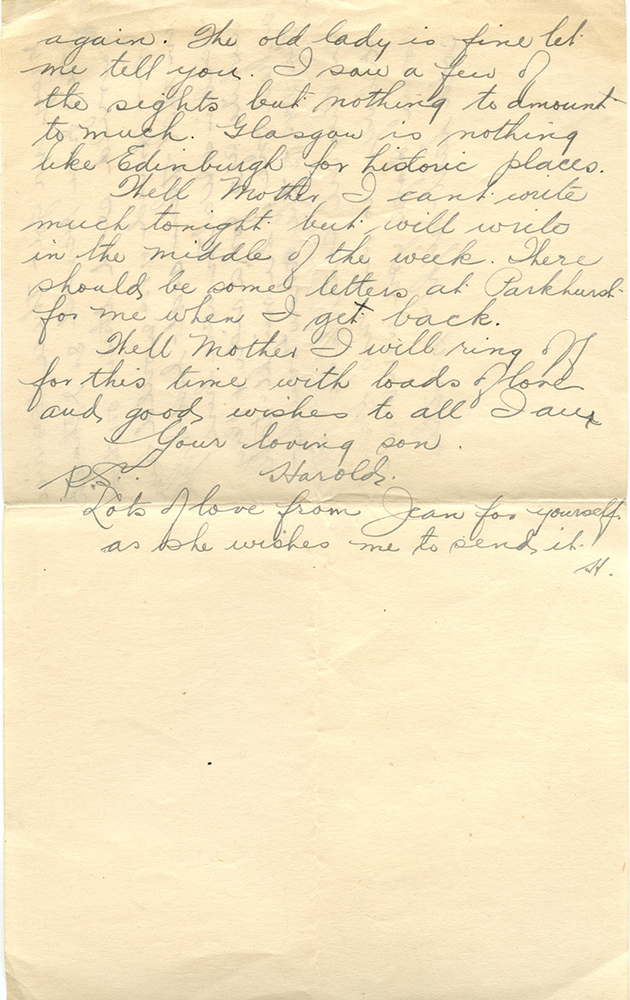 again. The old lady is fine let
me tell you. I saw a few of
the sights but nothing to amount
to much. Glasgow is nothing
like Edinburgh for historic places.
Well Mother I cant write
much tonight but will write
in the middle of the week. There
should be some letters at Parkhurst
for me when I get back.
Well Mother I will ring off
for this time with loads of love
and good wishes to all I am
Your loving son.
Harold.
P.S.
Lots of love from Jean for yourself
as she wishes me to send it.
H.